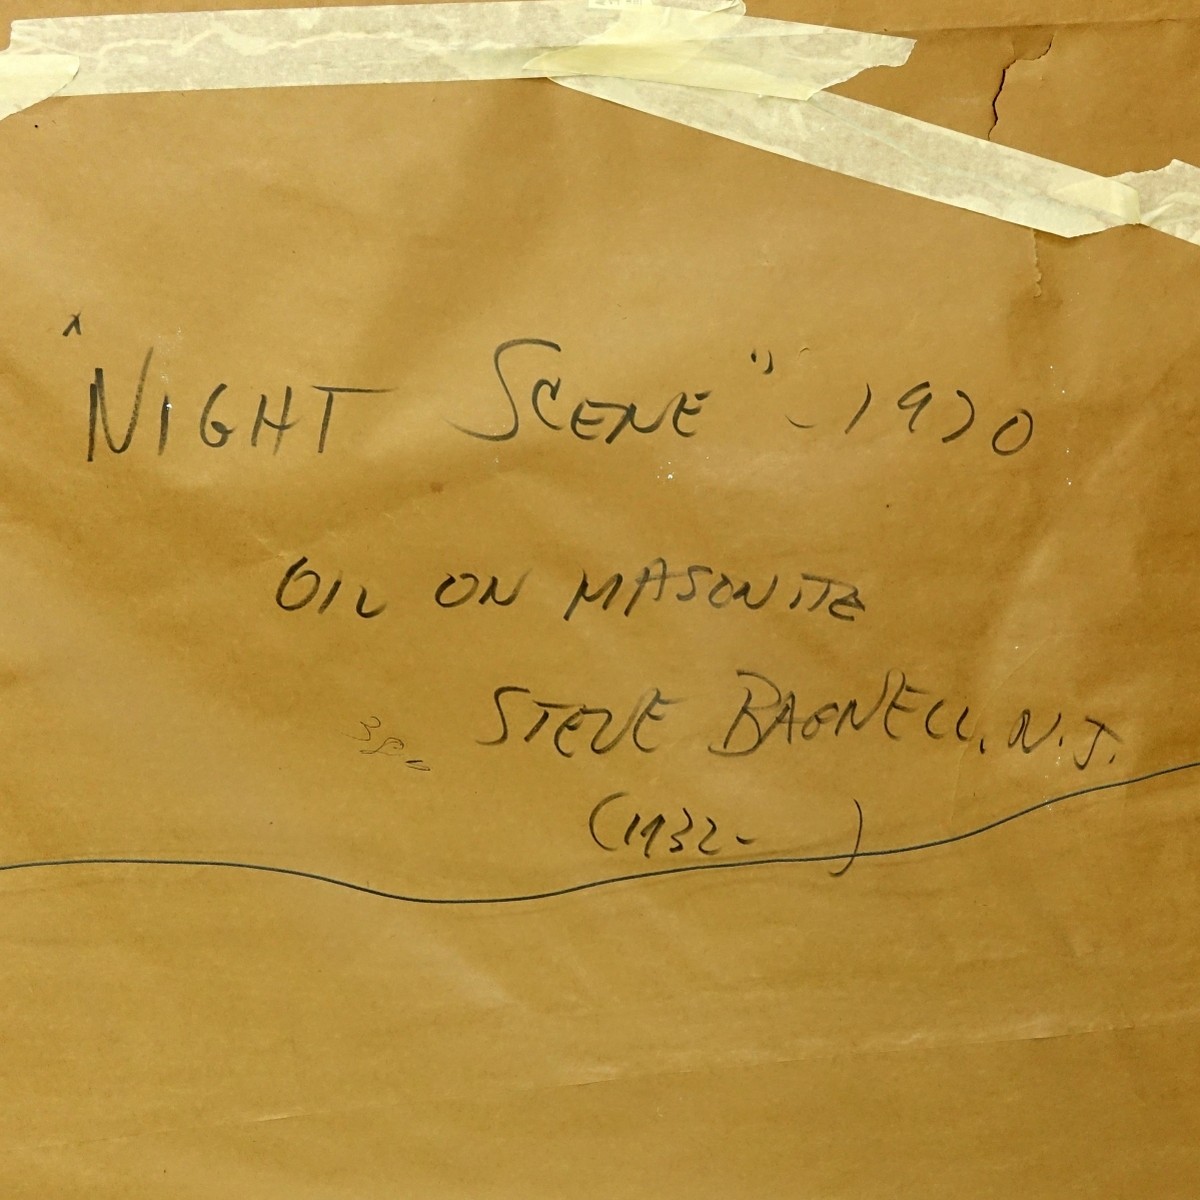 "NIGHT SCENE" - 1970
OIL ON MASONITE
STEVE BAGNELL, N.J.
(1932- )